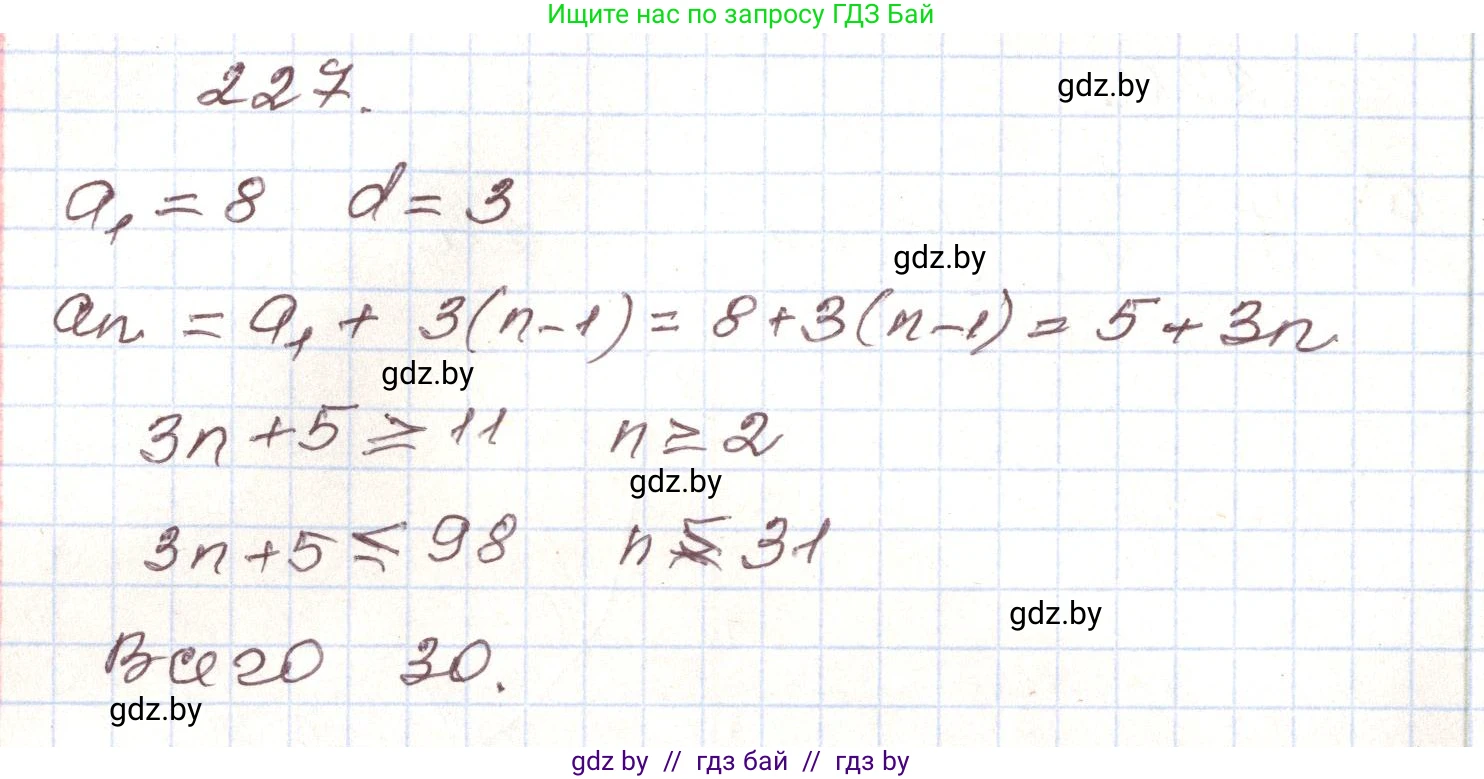 Ищите нас по запросу ГДЗ Бай
227.
gdz.by
a₁ = 8 d = 3
gdz.by
an = a₁ + 3(n-1) = 8+3(n-1) = 5+3n
gdz.by
3n+5 ≥ 11 n ≥ 2
gdz.by
3n+5 ≤ 98 n ≤ 31
gdz.by
Всего 30.
gdz.by
gdz by // гдз бай // гдз by